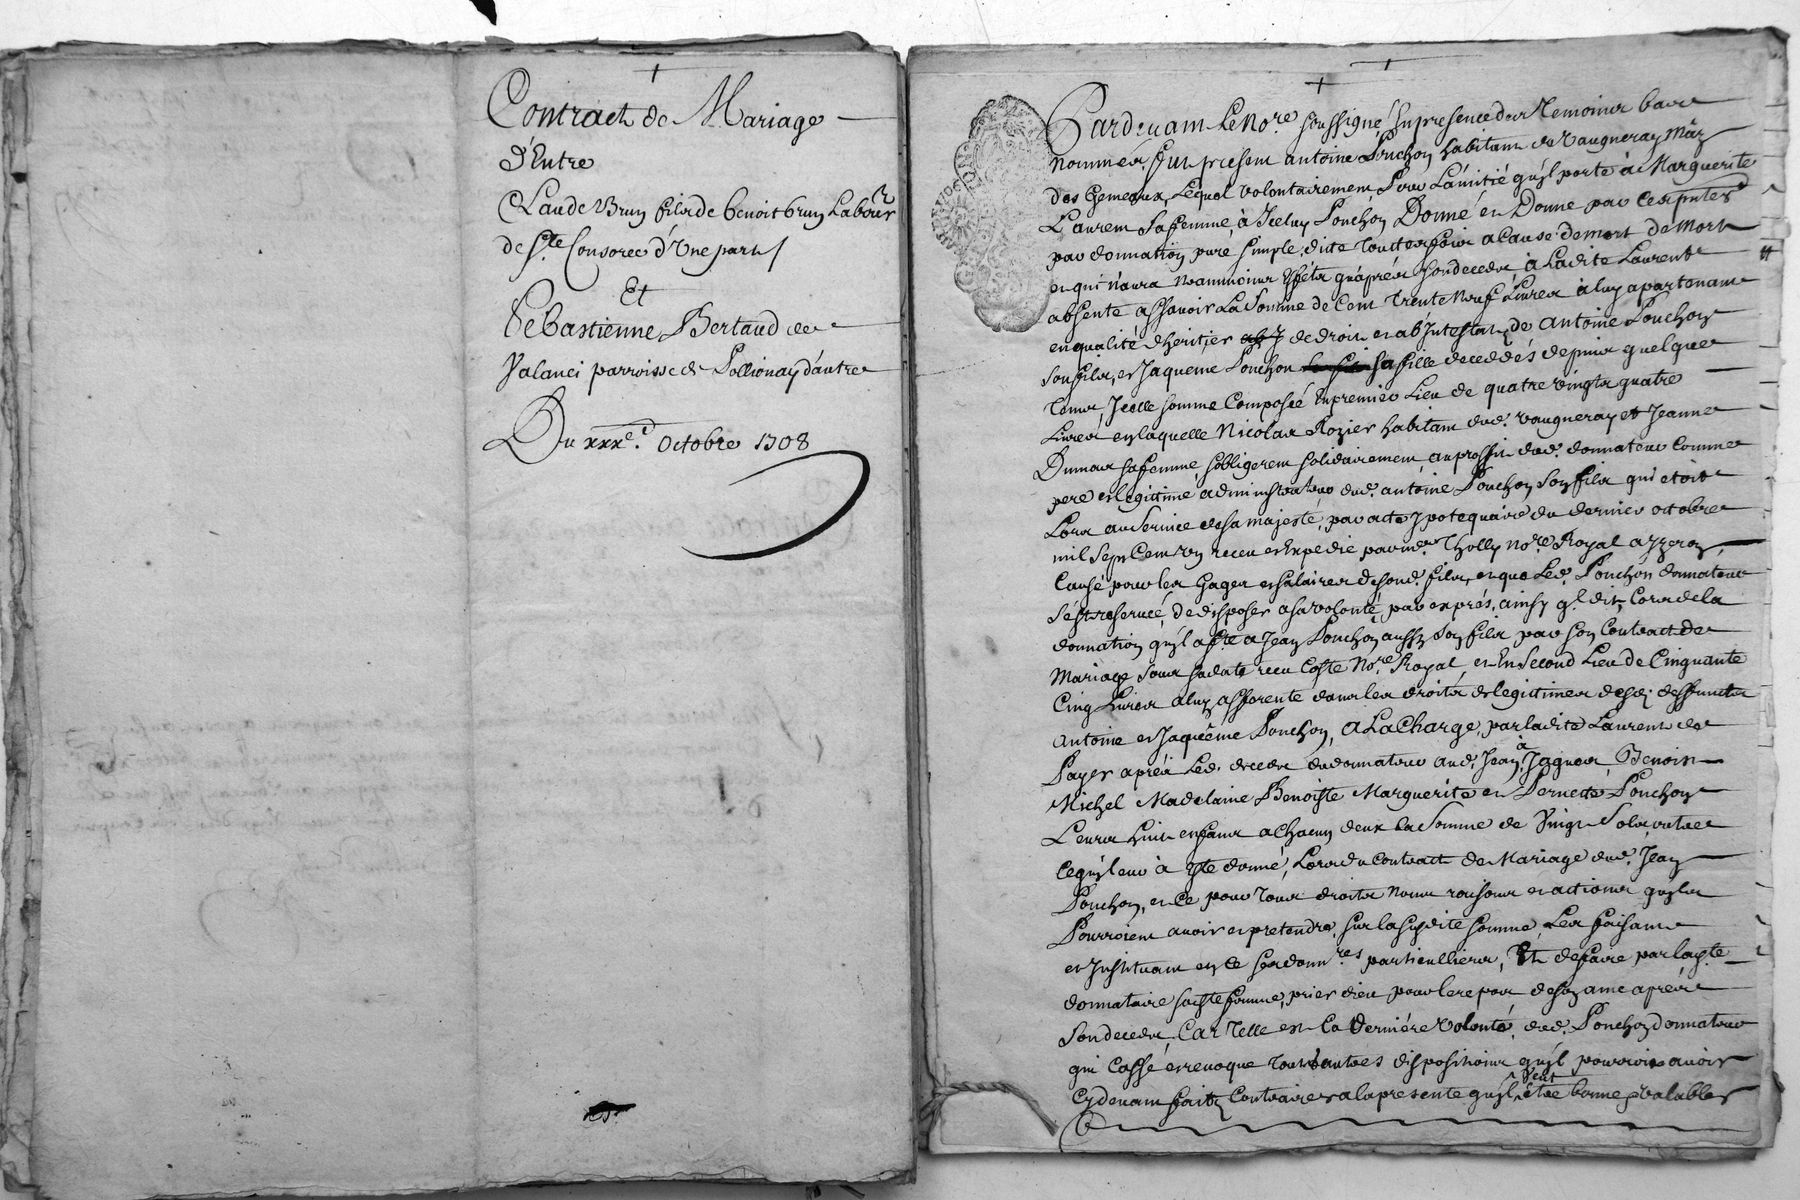 Contract de Mariage
D'Entre
Claude Brun fils de benoit brun Labour
de Ste. Consorce d'Une part /
Et
Sebastienne Bertaud de
Valanci parroisse de Pollionay d'autre
Du xxxe. Octobre 1708
Pardevant Le Nore. soussigné En presence des Temoins bas
nommés, fut présent antoine Ponchon habitant de Vaugneray Maz
des Gemeaux, Lequel volontairement Pour L'amitié qu'il porte à Marguerite
Laurent sa femme, à Iceluy Ponchon Donné et Donne par ces pntes
par donnation pure simple, dite Touttesfois a Cause de mort
et qui n'aura neanmoins Effét qu'aprés son deceds, à Ladite Laurent
absente assavoir La Somme de Cent Trente Neuf Livres à luy apartenant
en qualité d'heritier de droit et ab'intestat, de antoine Ponchon
son fils, et Jaqueme Ponchon sa fille decedés depuis quelque
Tems, Icelle somme Composée En premier Lieu de quatre vingts quatre
Livres en laquelle Nicolas Rozier habitant dud. Vaugneray et Jeanne
Dumas sa femme, s'obligerent solidairement, au proffit dud. donnateur Comme
pere et legitime administrateur dud. antoine Ponchon son fils qui etoit
Lors au Service de sa majesté, par acte Ipotequaire du dernier octobre
mil Sept Cent un receu et Expedié par me. Tholly nore. Royal a yzeron
Causé pour les gages et salaires de sond. fils, et que Led. Ponchon donnateur
s'est reservé, de disposer a sa volonté, par exprés, ainsy q'l dit, Lors de la
donnation qu'il a fte a Jean Ponchon aussy son fils par son Contract de
Mariage sous sa date receu Coste Nore. Royal, et En Second Lieu de Cinquante
Cinq Livres a luy afferente dans les droits de legittimes desd. deffuncts
antoine et Jaqueme Ponchon, A La Charge, par ladite Laurent de
Payer aprés Led. deceds du donnateur aud. Jean, à Jaques, Benoist
Michel Madelaine Benoiste Marguerite et Pernette Ponchon
Leurs huit enfans a Chacun d'eux la Somme de Vingt Sols, outre
Ce qu'il leur à este donné, Lors du Contract de Mariage dud. Jean
Ponchon, et Ce pour Tous droits Noms raisons et actions qu'ils
Pourroient avoir et pretendre, sur la susdite somme, Les faisant
et Instituant en Ce ses donnres. particulliers, Et de faire par lad.
donnataire sadte femme, prier dieu pour le repos de son ame aprés
Son deceds, Car Telle est la Derniére Volonté, dud. Ponchon donnateur
qui Cassé et revoque Touttes autres dispositions qu'il pourroit avoir
Cy devant faits, Contraires a la presente qu'il veut être bonne et valable